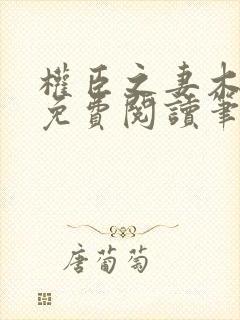 權臣之妻木
免費閱讀筆
唐葡萄